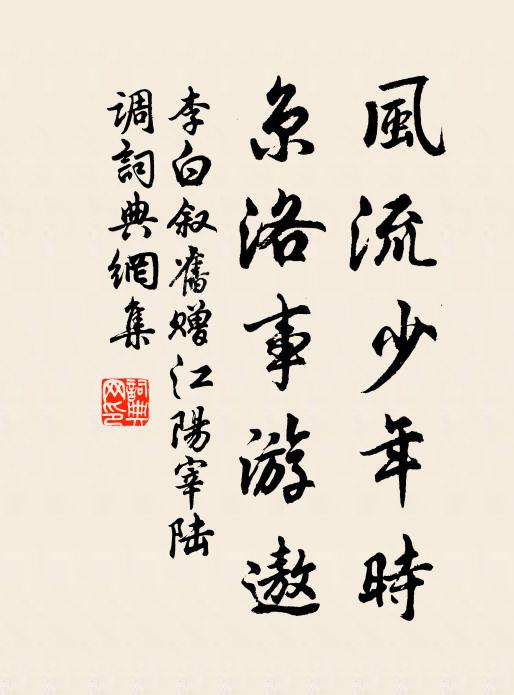 風流少年時
京洛事游遨
李白叙舊贈江陽宰陆
调詞典網集
詞典
网印